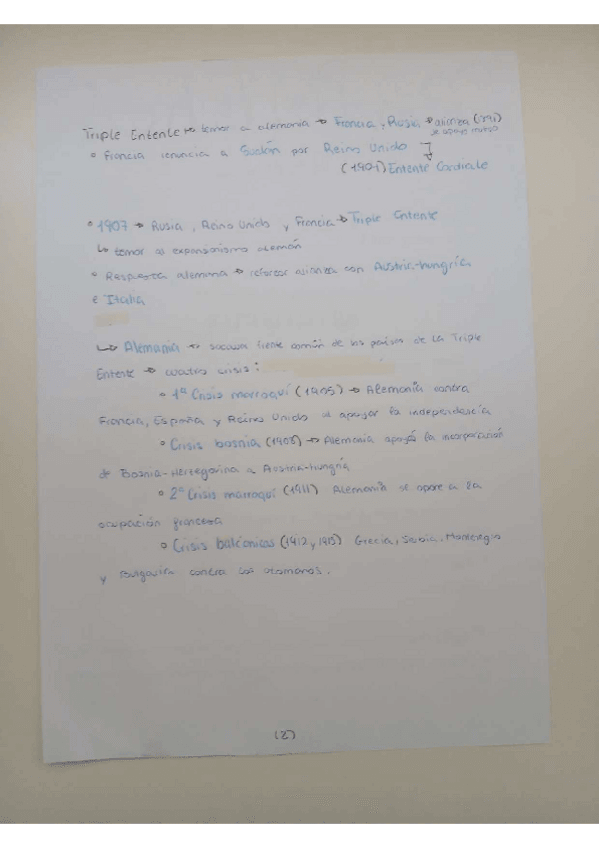 Triple Entente → temor a alemania → Francia, Rusia → alianza
de apoyo mutuo
• Francia renuncia a Sudán por Reino Unido
(1904) Entente Cordiale
• 1907 → Rusia, Reino Unido y Francia → Triple Entente
↳ temor al expansionismo alemán
• Respuesta alemana → reforzar alianza con Austria-hungría
e Italia
↳ Alemania → socavar frente común de los países de la Triple
Entente → cuatro crisis:
• 1ª Crisis marroquí (1905) → Alemania contra
Francia, España y Reino Unido al apoyar la independencia
• Crisis bosnia (1908) → Alemania apoyó la incorporación
de Bosnia-Herzegovina a Austria-hungría
• 2ª Crisis marroquí (1911) Alemania se opone a la
ocupación francesa
• Crisis balcánicas (1912 y 1913) Grecia, Serbia, Montenegro
y Bulgaria contra los otomanos.
(2)